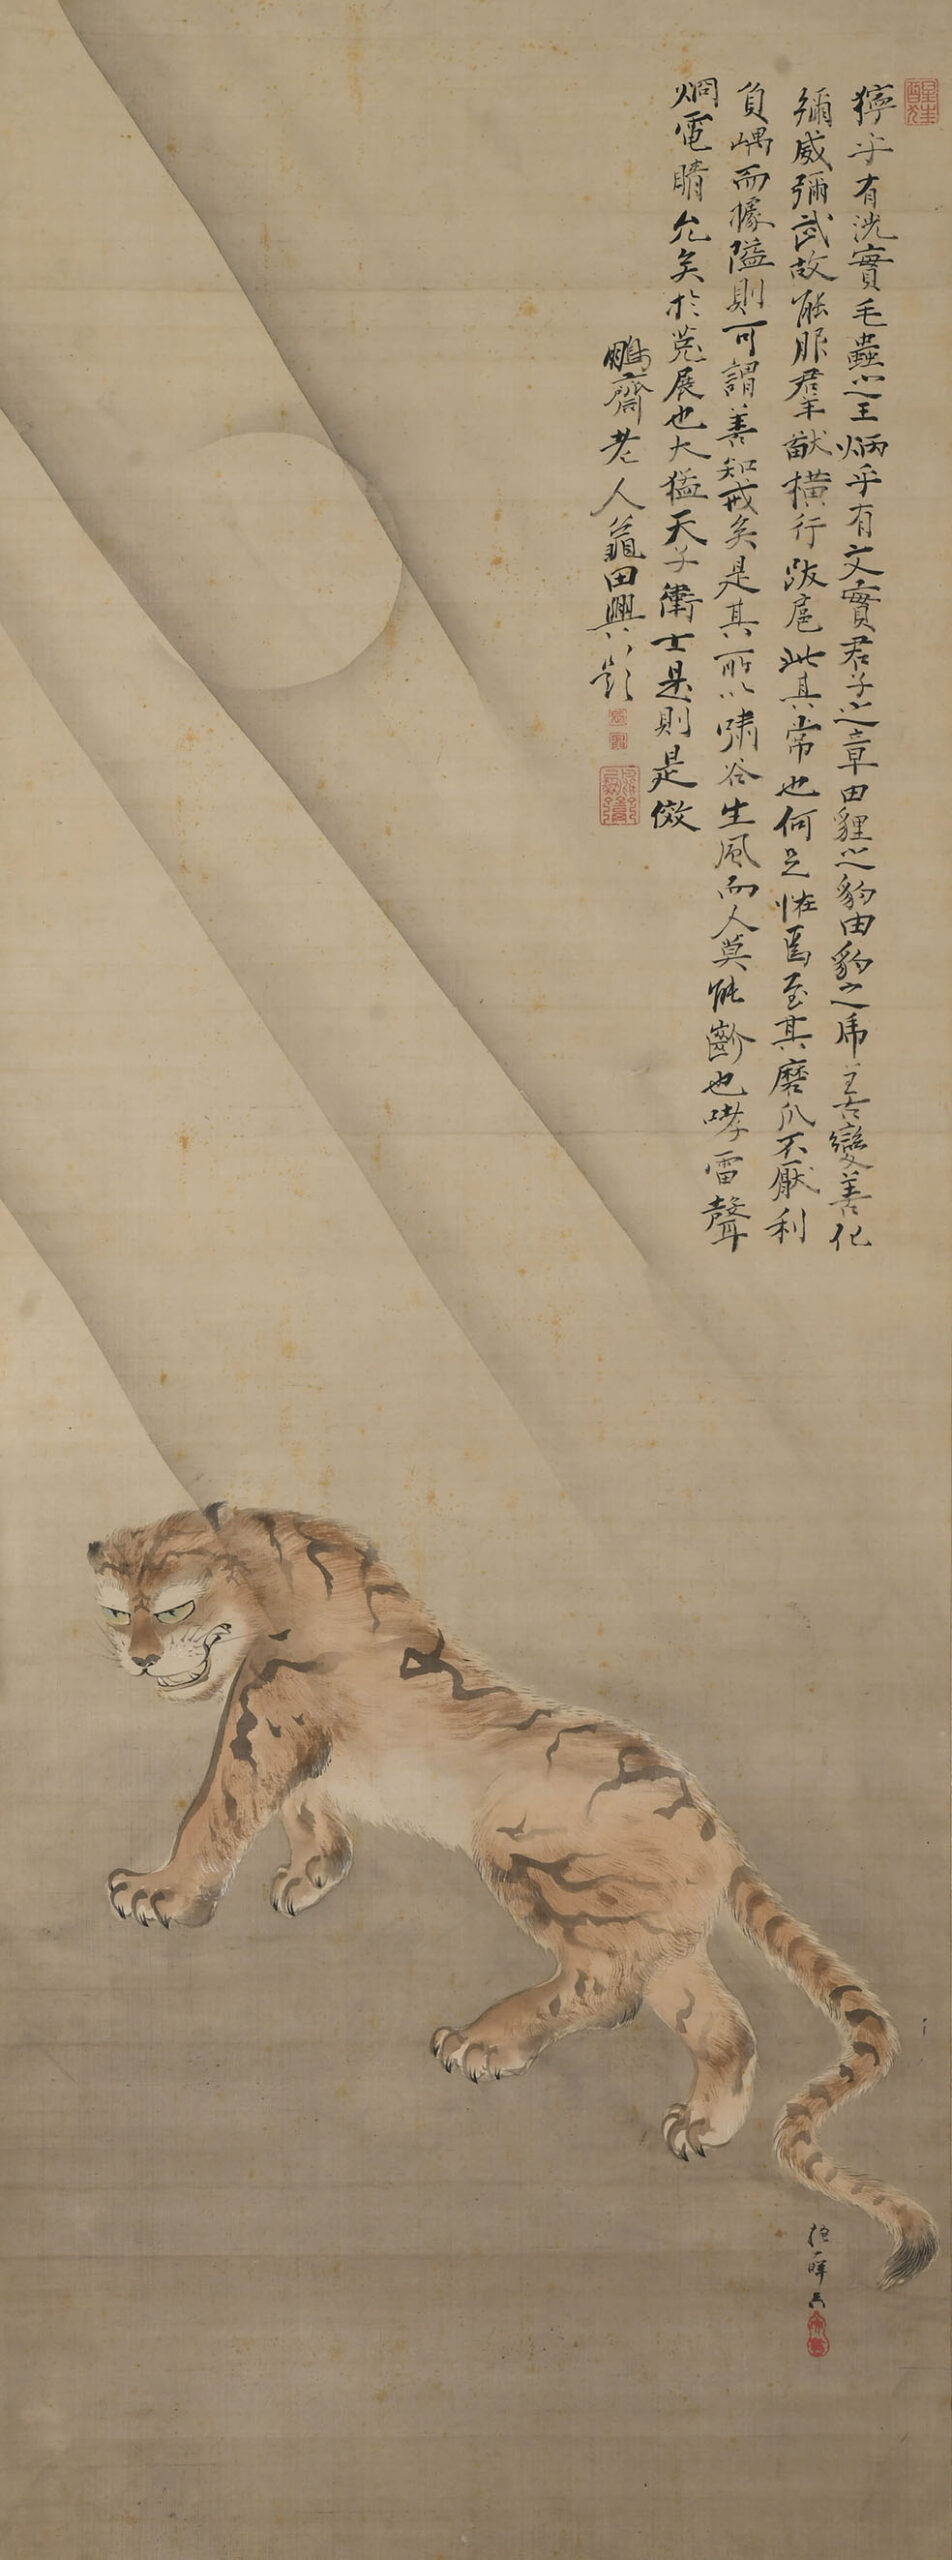 獰乎有洸實毛蟲之王炳乎有文實君子之章由貍之豹由豹之虎善變善化
彌威彌武故能服羣獣横行跋扈此其常也何足恠焉至其磨爪不厭利
負嵎而據隘則可謂善知戒矣是其所以嘯谷生風而人莫能齘也哮雷聲
烱電睛允矣於菟展也大猛天子衛士是則是傚
鵬齋老人龜田興題